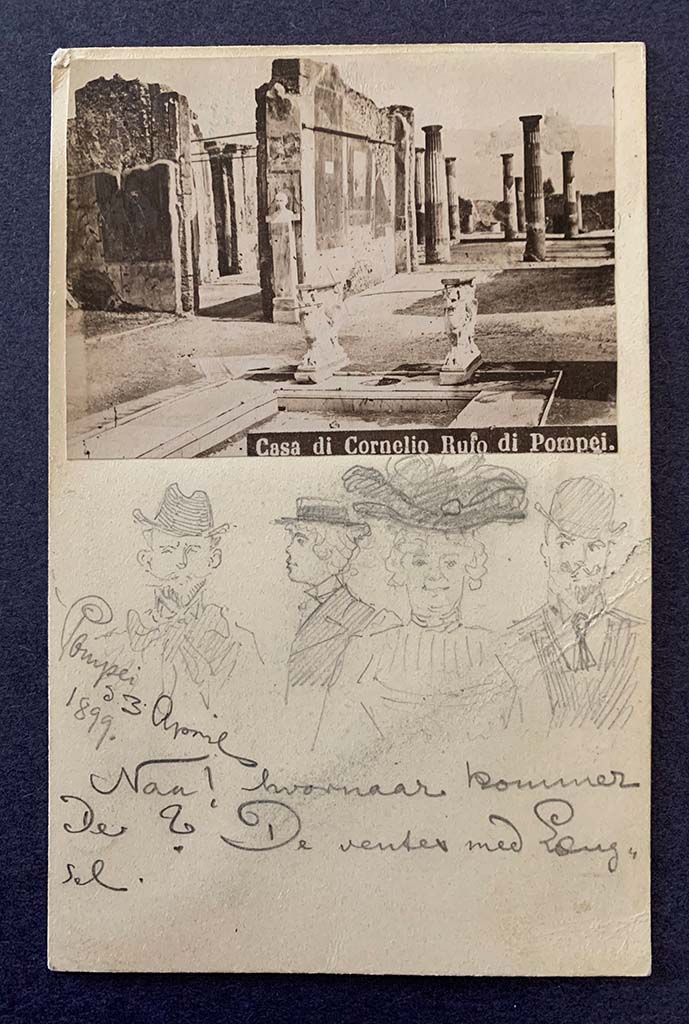 Casa di Cornelio Rufo di Pompei.
Pompei
d 3 April
1899.
Naa! hvornaar kommer
De? De ventes med Læng„
sel.